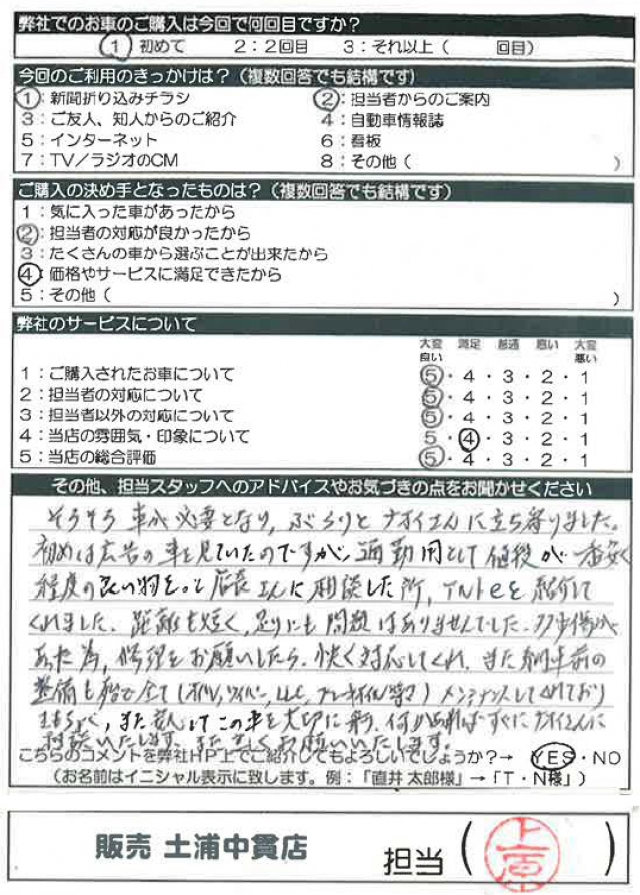 弊社でのお車のご購入は今回で何回目ですか？
1 初めて 2：2回目 3：それ以上（ 回目）
今回のご利用のきっかけは？（複数回答でも結構です）
1：新聞折り込みチラシ 2：担当者からのご案内
3：ご友人、知人からのご紹介 4：自動車情報誌
5：インターネット 6：看板
7：TV／ラジオのCM 8：その他（ ）
ご購入の決め手となったものは？（複数回答でも結構です）
1：気に入った車があったから
2：担当者の対応が良かったから
3：たくさんの車から選ぶことが出来たから
4：価格やサービスに満足できたから
5：その他（ ）
弊社のサービスについて
大変良い 満足 普通 悪い 大変悪い
1：ご購入されたお車について 5・4・3・2・1
2：担当者の対応について 5・4・3・2・1
3：担当者以外の対応について 5・4・3・2・1
4：当店の雰囲気・印象について 5・4・3・2・1
5：当店の総合評価 5・4・3・2・1
その他、担当スタッフへのアドバイスやお気づきの点をお聞かせください
そろそろ車が必要となり、ぶらりとナオイさんに立ち寄りました。
初めは広告の車を見ていたのですが、通勤用として値段が
程度の良い物をと店長さんに相談した所、 を紹介して
くれました。距離も短く、足りにも問題はありませんでした。
あった為、修理をお願いしたら、快く対応してくれ、また納車前の
整備も 全て（オイル、ワイパー、LLC、ブレーキオイル等々）メンテナンスしてくれており
、また この車を大切に乗り、何かあればすぐにナオイさんに
相談いたします。また宜しくお願いいたします。
こちらのコメントを弊社HP上でご紹介してもよろしいでしょうか？→ YES・NO
（お名前はイニシャル表示に致します。例：「直井 太郎様」→「T・N様」）
販売 土浦中貫店 担当（ ）